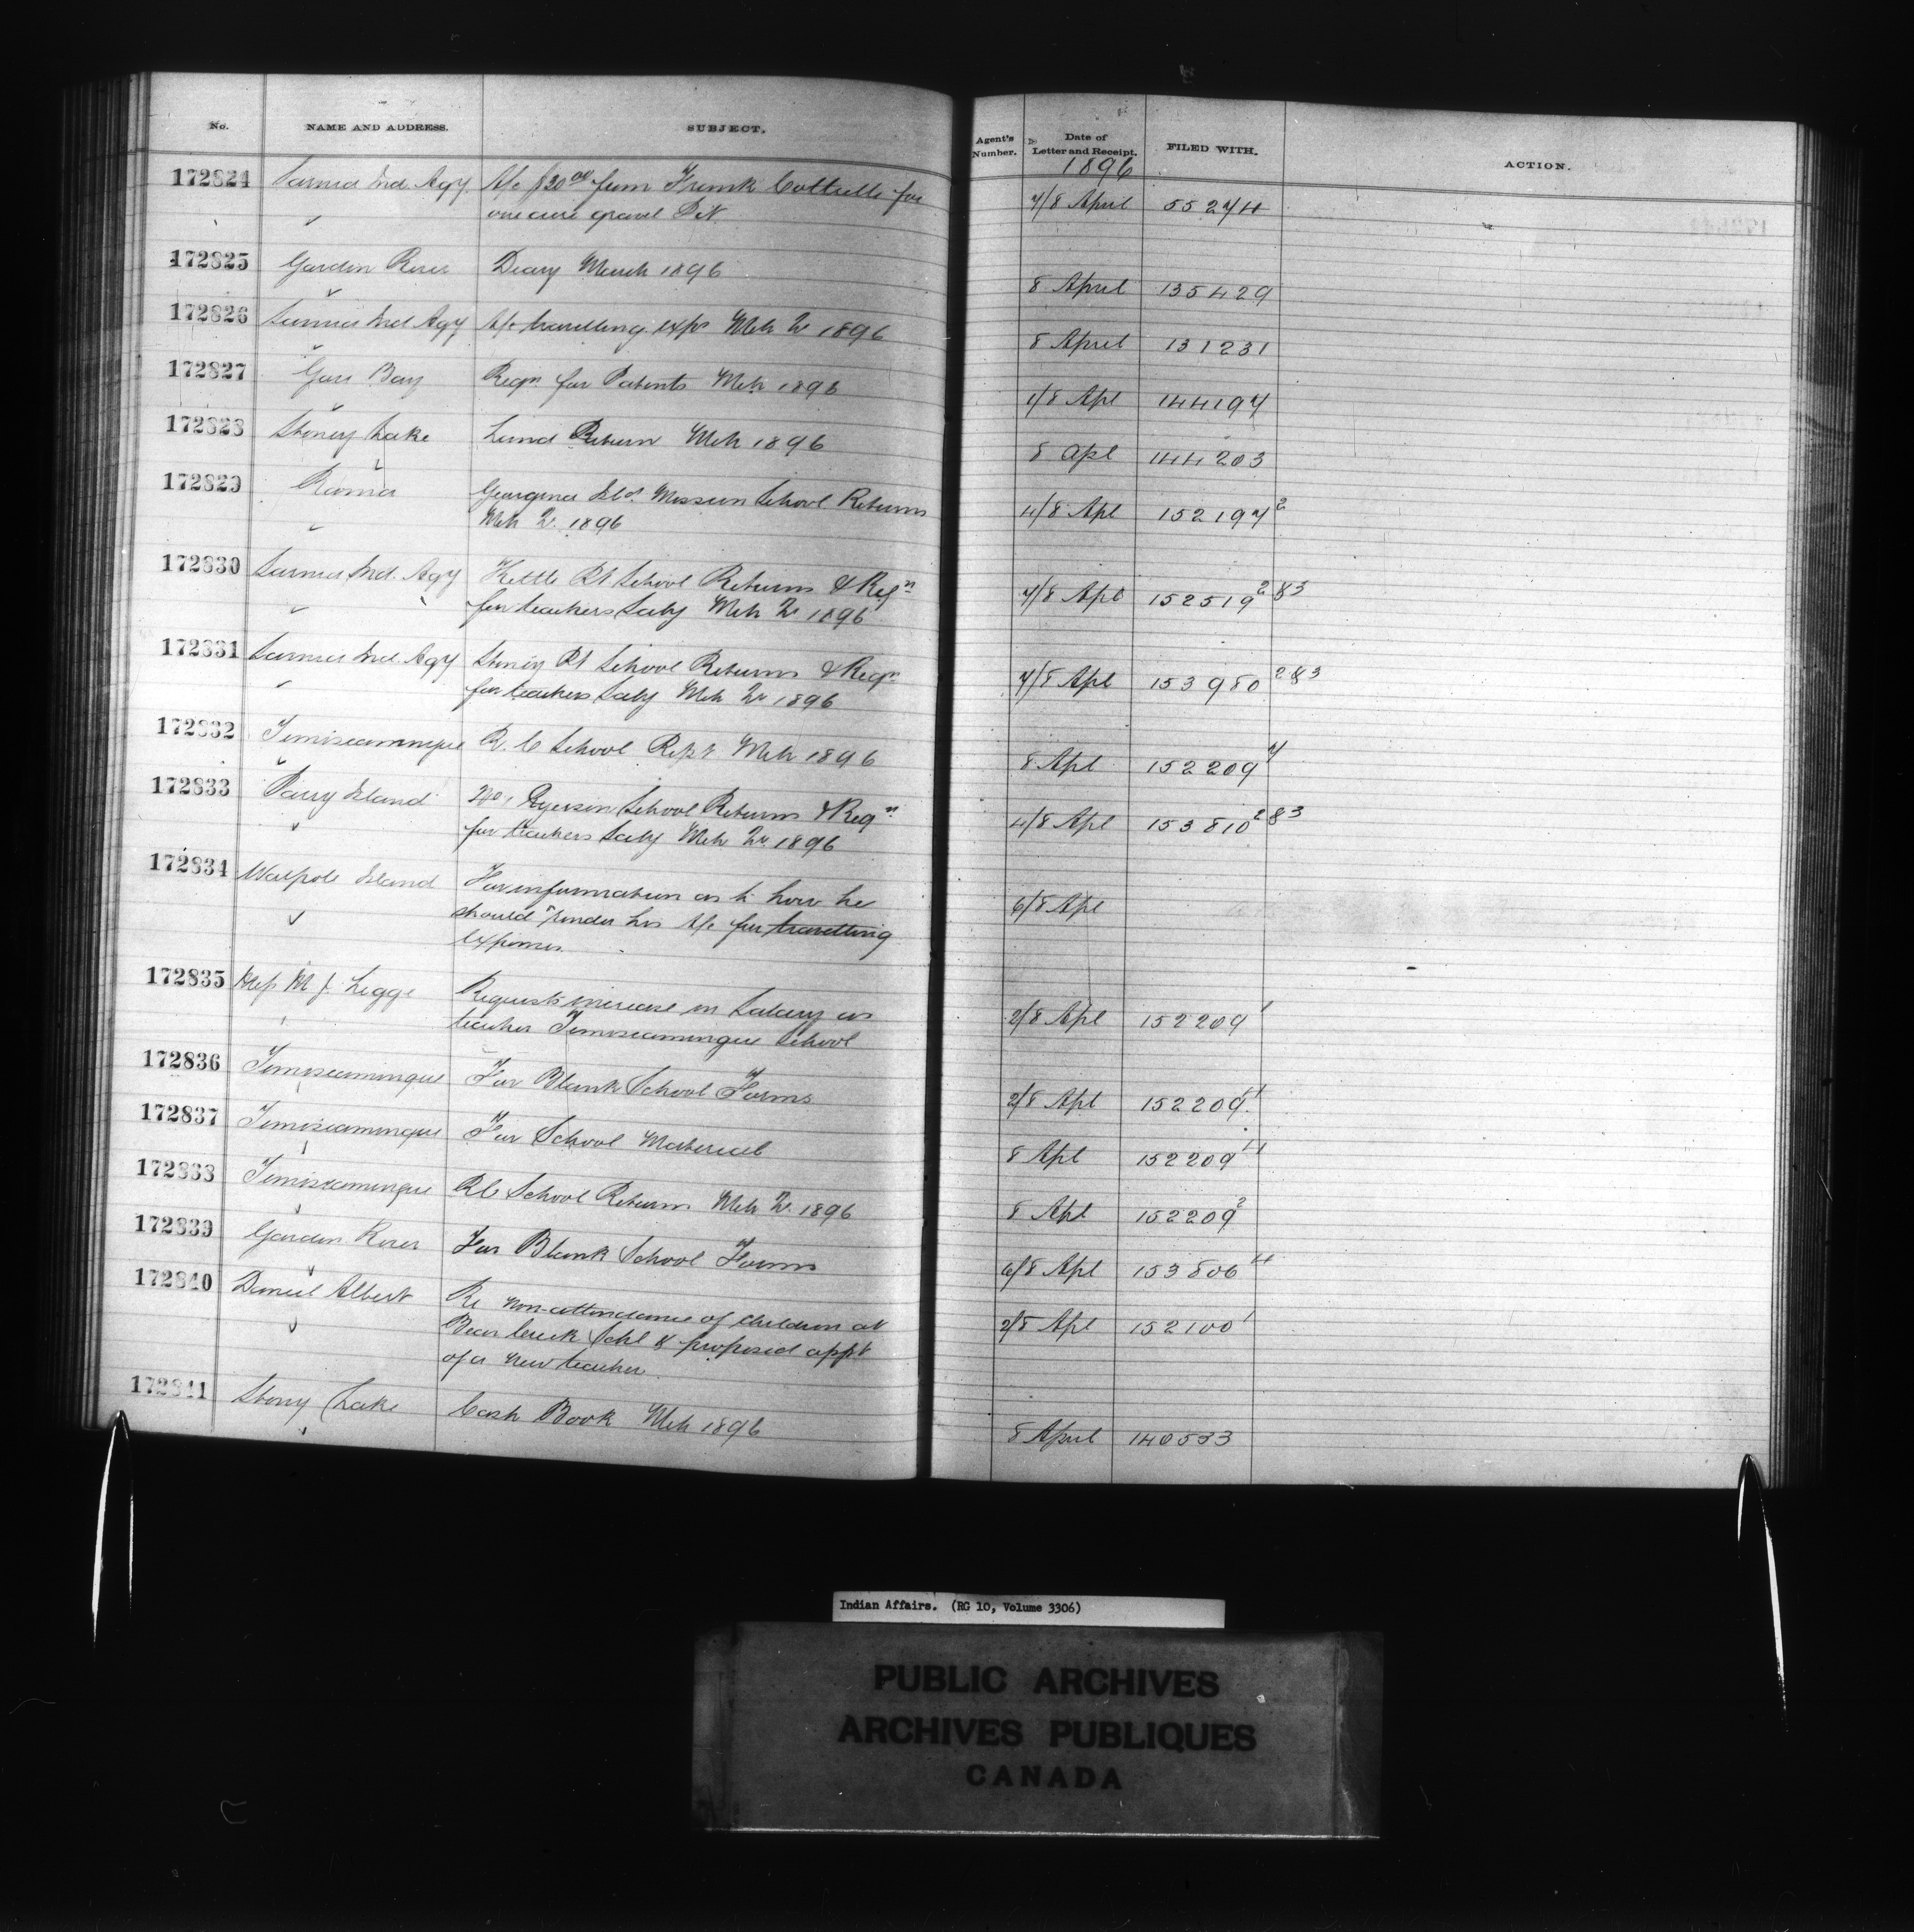 No. NAME AND ADDRESS. SUBJECT. Agent's Number. Date of Letter and Receipt. FILED WITH. ACTION.
1896
172824 Sarnia Ind. Agy A/c $20.00 from Frank Cottrelle for 7/8 April 55274
one acre gravel Pit
172825 Garden River Diary March 1896 8 April 135429
172826 Sarnia Ind Agy A/c travelling exps Mch Qr 1896 8 April 131231
172827 Gore Bay Reqn for Patents Mch 1896 1/8 Apl 144197
172828 Stoney Lake Land Return Mch 1896 8 Apl 144203
172829 Rama Georgina Isld Mission School Returns 4/8 Apl 152197 2
Mch Qr 1896
172830 Sarnia Ind. Agy Kettle Pt School Returns & Reqn 7/8 Apl 152519 2&3
for teachers Saly Mch Qr 1896
172831 Sarnia Ind Agy Stoney Pt School Returns & Reqn 7/8 Apl 153980 2&3
for teachers Saly Mch Qr 1896
172832 Temiscamingue R. C School Rept Mch 1896 8 Apl 152209 7
172833 Parry Island No 1 Ryerson School Returns & Reqn 4/8 Apl 153810 2&3
for teachers Saly Mch Qr 1896
172834 Walpole Island For information as to how he 6/8 Apl
should render his A/c for travelling
expenses
172835 Miss M J. Legge Requests increase in Salary as 2/8 Apl 152209 1
teacher Temiscamingue School
172836 Temiscamingue For Blank School Forms 2/8 Apl 152209 4
172837 Temiscamingue For School Material 8 Apl 152209 4
172838 Temiscamingue RC School Returns Mch Qr 1896 8 Apl 152209 2
172839 Garden River For Blank School Forms 6/8 Apl 153806 4
172840 Daniel Albert Re non-attendance of children at 2/8 Apl 152100 1
Bear Creek Schl & proposed appt
of a new teacher
172841 Stony Lake Cash Book Mch 1896 8 April 140533
Indian Affairs. (RG 10, Volume 3306)
PUBLIC ARCHIVES
ARCHIVES PUBLIQUES
CANADA